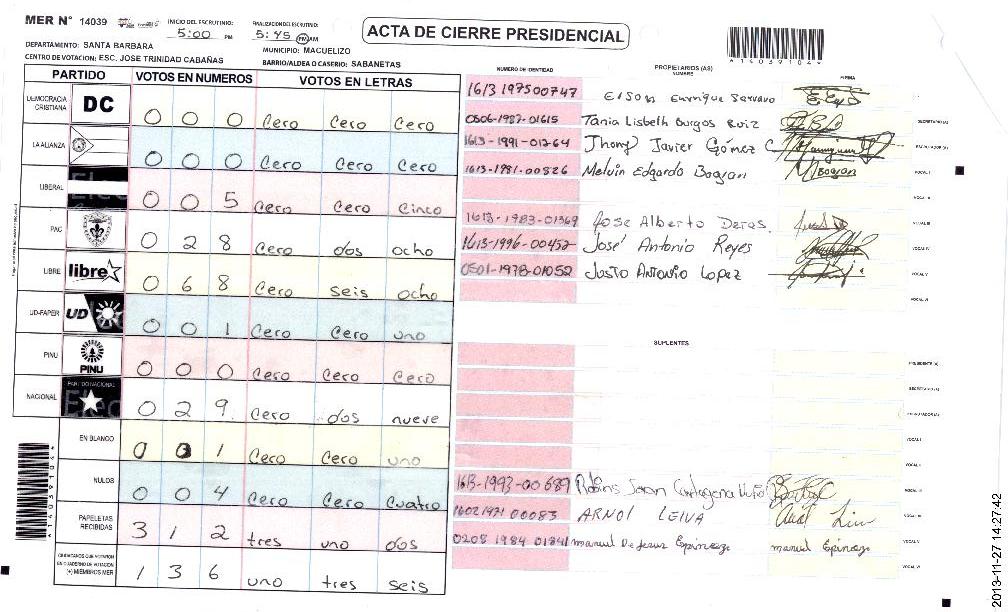 MER N° 14039
INICIO DEL ESCRUTINIO:
5:00 PM
FINALIZACION DEL ESCRUTINIO:
5:45 PM AM
ACTA DE CIERRE PRESIDENCIAL
A140391044
DEPARTAMENTO: SANTA BARBARA
MUNICIPIO: MACUELIZO
CENTRO DE VOTACION: ESC. JOSE TRINIDAD CABAÑAS
BARRIO/ALDEA O CASERIO: SABANETAS
PARTIDO VOTOS EN NUMEROS VOTOS EN LETRAS
DEMOCRACIA CRISTIANA DC 0 0 0 Cero Cero Cero
LA ALIANZA 0 0 0 Cero Cero Cero
LIBERAL 0 0 5 Cero Cero Cinco
PAC 0 2 8 Cero dos ocho
LIBRE libre 0 6 8 Cero seis ocho
UD-FAPER UD 0 0 1 Cero Cero uno
PINU PINU 0 0 0 Cero Cero Cero
NACIONAL PARTIDO NACIONAL 0 2 9 Cero dos nueve
EN BLANCO 0 0 1 Cero Cero uno
NULOS 0 0 4 Cero Cero Cuatro
PAPELETAS RECIBIDAS 3 1 2 tres uno dos
CIUDADANOS QUE VOTARON EN CUADERNO DE VOTACION (+) MIEMBROS MER 1 3 6 uno tres seis
NUMERO DE IDENTIDAD PROPIETARIOS (AS) NOMBRE FIRMA
1613 197500747 Enrique
0506-1987-01615 Tania Lisbeth Burgos Ruiz SECRETARIO (A)
1613-1991-01264 Jhony Javier Gómez C ESCRUTADOR (A)
1613-1981-00826 Melvin Edgardo Bogran M Bogran VOCAL I
VOCAL II
1613-1983-01369 Jose Alberto Deras. VOCAL III
1613-1996-00452 José Antonio Reyes VOCAL IV
0501-1978-01052 Justo Antonio Lopez VOCAL V
VOCAL VI
SUPLENTES
PRESIDENTE (A)
SECRETARIO (A)
ESCRUTADOR (A)
VOCAL I
VOCAL II
1613-1993-00689 Cartagena VOCAL III
16021971 00083 ARNOL LEIVA VOCAL IV
0205 1984 01841 manuel De Jesus Espinoza manuel Espinoza VOCAL V
VOCAL VI
A140391044
2013-11-27 14:27:42